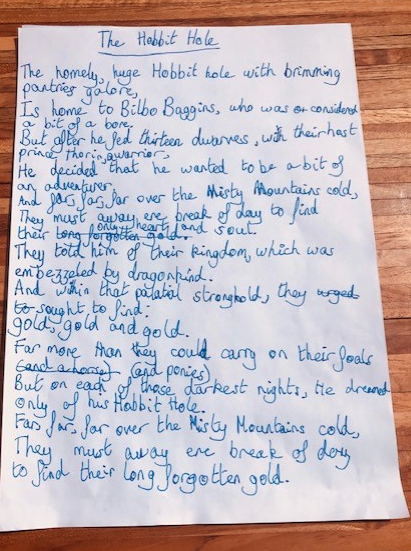 The Hobbit Hole
The homely, huge Hobbit hole with brimming
pantries galore,
Is home to Bilbo Baggins, who was considered
a bit of a bore.
But after he fed thirteen dwarves, with their host
prince Thorin, warrior,
He decided that he wanted to be a bit of
an adventurer.
And far, far, far over the Misty Mountains cold,
They must away ere break of day to find
their long forgotten gold. only heart and soul.
They told him of their kingdom, which was
embezzeled by dragonkind.
And within that palatial stronghold, they urged
to sought to find:
gold, gold and gold.
Far more than they could carry on their foals
(and a horse) (and ponies)
But on each of those darkest nights, He dreamed
only of his Hobbit Hole.
Far, far, far over the Misty Mountains cold,
They must away ere break of day
to find their long forgotten gold.